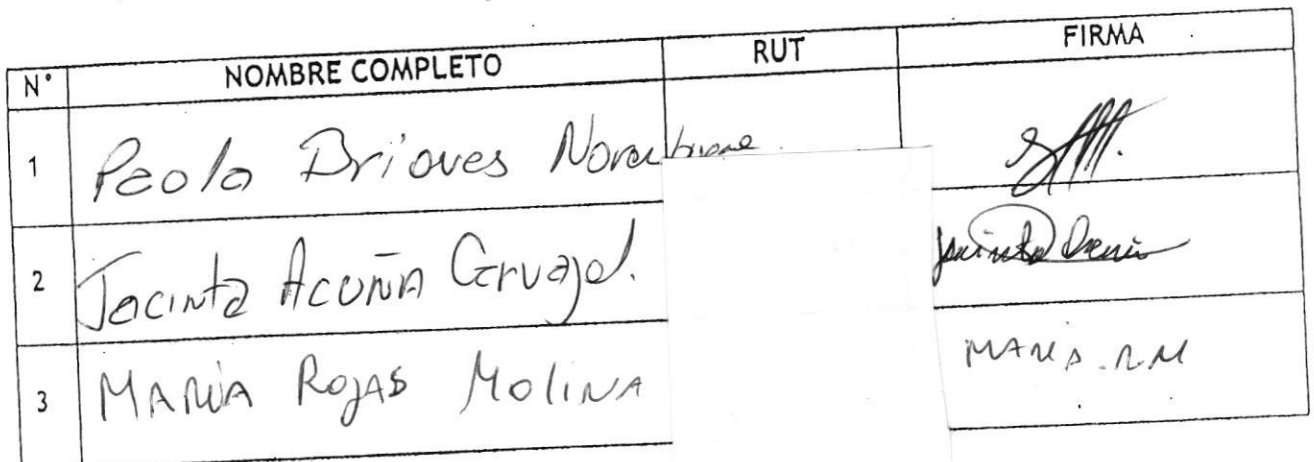 N° NOMBRE COMPLETO RUT FIRMA
1 Paola Briones
2 Jacinta Acuña Carvajal. Jacinta Acuña
3 MARIA ROJAS MOLINA MARIA R.M